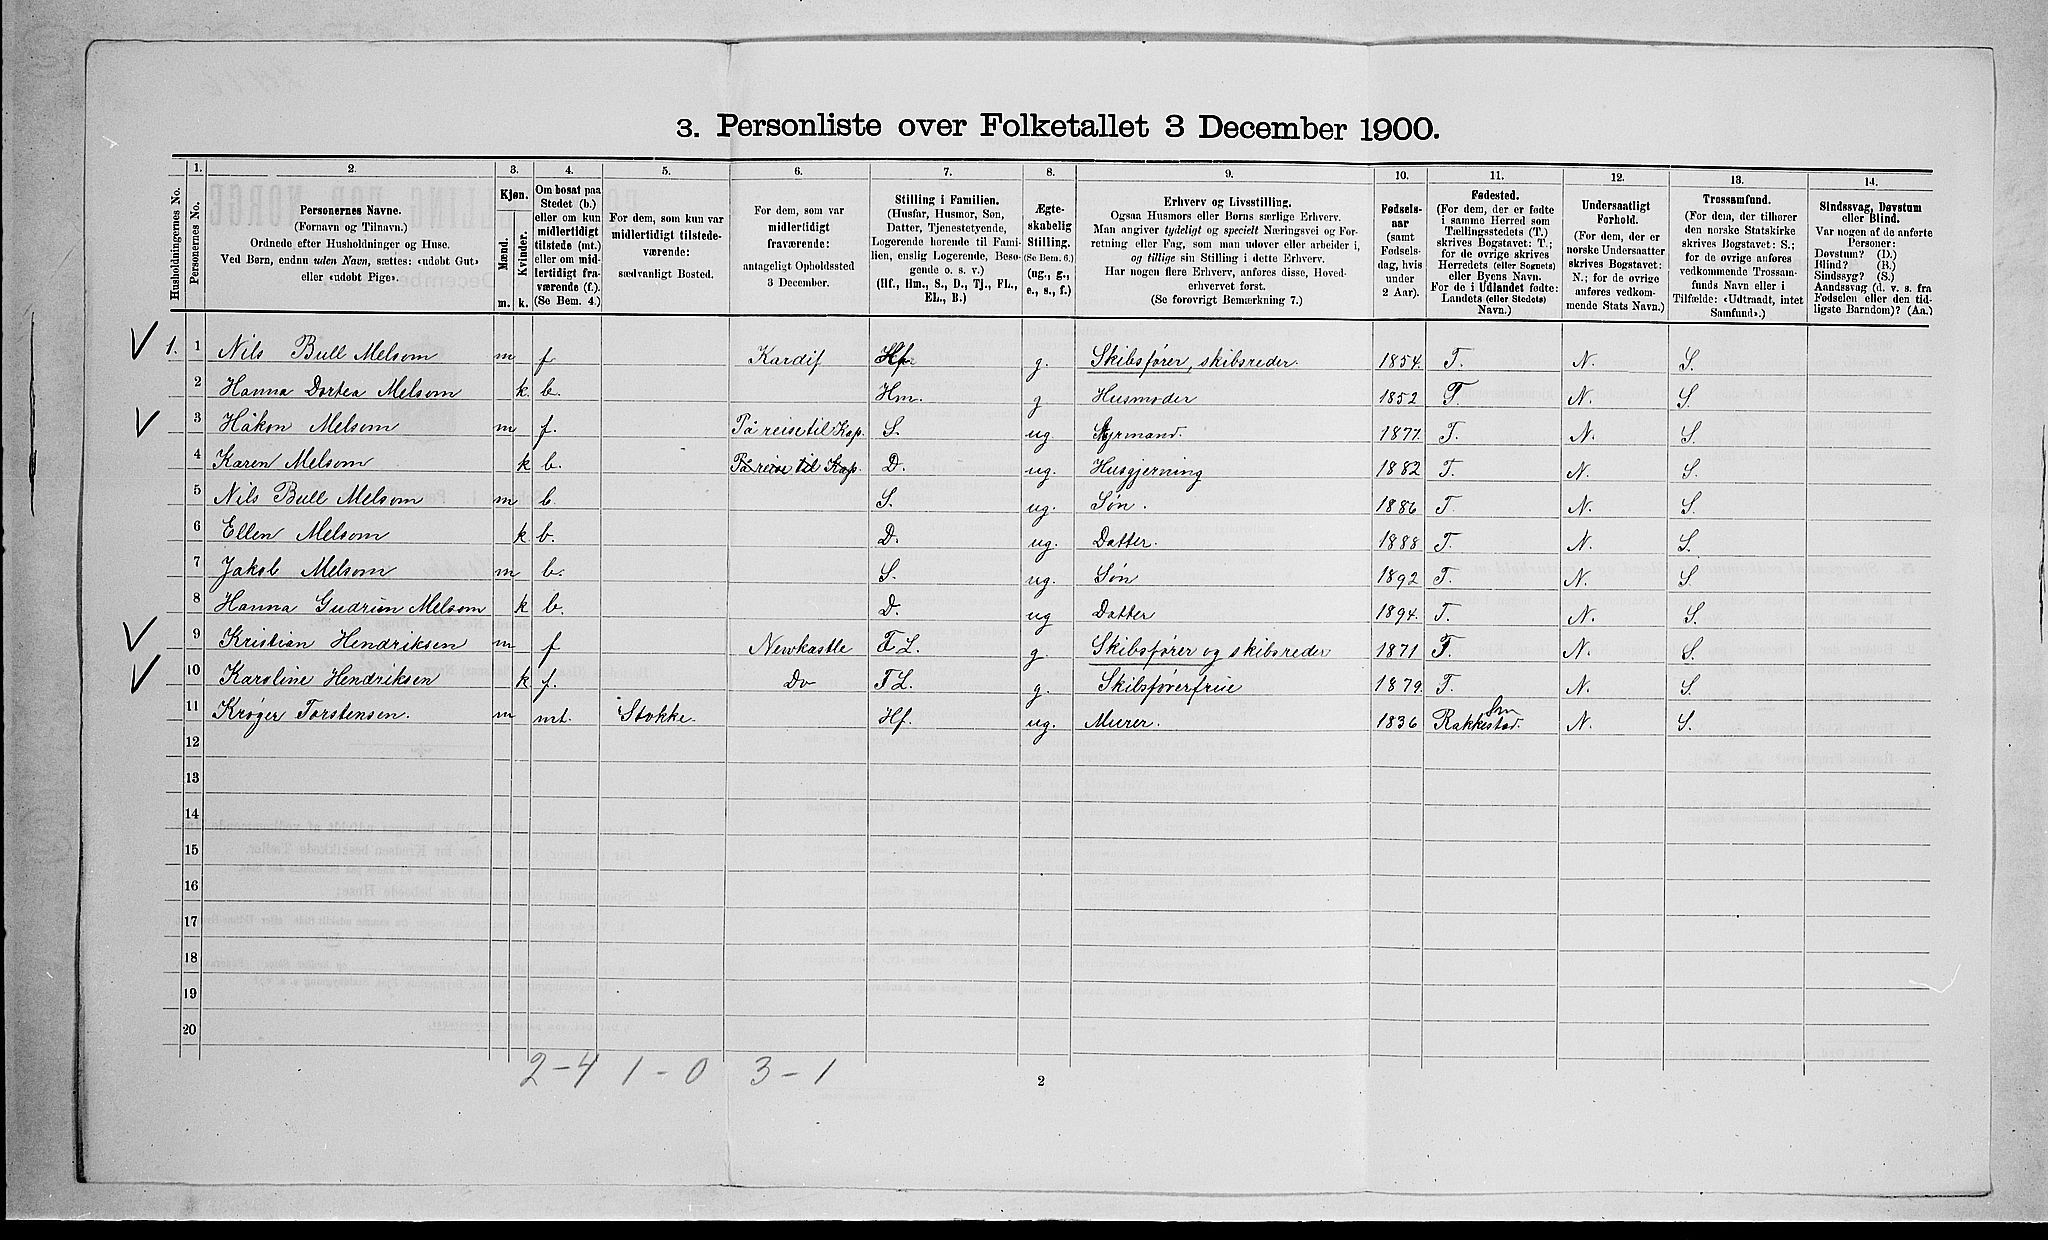 3. Personliste over Folketallet 3 December 1900.
Husholdningernes No.
1.
Personernes No.
2.
Personernes Navne.
(Fornavn og Tilnavn).
Ordnede efter Husholdninger og Huse.
Ved Børn, endnu uden Navn, sættes: «udøbt Gut»
eller «udøbt Pige».
3.
Kjøn.
Mænd.
Kvinder.
m.
k.
4.
Om bosat paa
Stedet (b.)
eller om kun
midlertidigt
tilstede (mt.)
eller om mid-
lertidigt fra-
værende (f.).
(Se Bem. 4.)
5.
For dem, som kun var
midlertidigt tilstede-
værende:
sædvanligt Bosted.
6.
For dem, som var
midlertidigt
fraværende:
antageligt Opholdssted
3 December.
7.
Stilling i Familien.
(Husfar, Husmor, Søn,
Datter, Tjenestetyende,
Logerende hørende til Fami-
lien, enslig Logerende, Besø-
gende o. s. v.)
(Hf., Hm., S., D., Tj., FL.,
EL., B.)
8.
Ægte-
skabelig
Stilling.
(Se Bem. 6.)
(ug., g.,
e., s., f.)
9.
Erhverv og Livsstilling.
Ogsaa Husmors eller Børns særlige Erhverv.
Man angiver tydeligt og specielt Næringsvei og For-
retning eller Fag, som man udøver eller arbeider i,
og tillige sin Stilling i dette Erhverv.
Har nogen flere Erhverv, anføres disse, Hoved-
erhvervet først.
(Se forøvrigt Bemærkning 7.)
10.
Fødsels-
aar
(samt
Fødsels-
dag, hvis
under
2 Aar).
11.
Fødested.
(For dem, der er fødte
i samme Herred som
Tællingsstedets (T.)
skrives Bogstavet: T.;
for de øvrige skrives
Herredets (eller Sognets)
eller Byens Navn.
For de i Udlandet fødte:
Landets (eller Stedets)
Navn.)
12.
Undersaatligt
Forhold.
(For dem, der er
norske Undersaatter
skrives Bogstavet:
N.; for de øvrige
anføres vedkom-
mende Stats Navn.)
13.
Trossamfund.
(For dem, der tilhører
den norske Statskirke
skrives Bogstavet: S.;
for de øvrige anføres
vedkommende Trossam-
funds Navn eller i
Tilfælde: «Udtraadt, intet
Samfund».)
14.
Sindssvag, Døvstum
eller Blind.
Var nogen af de anførte
Personer:
Døvstum? (D.)
Blind? (B.)
Sindssyg? (S.)
Aandssvag (d. v. s. fra
Fødselen eller den tid-
ligste Barndom)? (Aa.)
1. 1 Nils Bull Melsom m f Kardif Hf g. Skibsfører, skibsreder. 1854. T. N. S.
2 Hanna Dortea Melsom k. b. Hm. g Husmoder 1852 T. N. S.
3 Håkon Melsom m f. På reise til Kap. S. ug. Styrmand. 1877. T. N. S.
4 Karen Melsom k b. På reise til Kap. D. ug. Husgjerning 1882 T. N. S.
5 Nils Bull Melsom m b. S. ug. Søn. 1886 T. N. S.
6 Ellen Melsom k. b. D. ug. Datter. 1888 T. N. S.
7 Jakob Melsom m b. S. ug. Søn 1892 T. N. S
8 Hanna Gudrun Melsom k b. D. ug Datter 1894. T. N. S.
9 Kristian Hendriksen m f Newkastle F L. g. Skibsfører og skibsreder 1871 T. N. S.
10 Karoline Hendriksen k f. Do F L. g. Skibsførerfrue 1879. T. N. S
11 Krøger Torstensen. m mt. Stokke. Hf. ug. Murer. 1836 Rakkestad Sm N. S.
12
13
14
15
16
17
18
19
20
2-4 1-0 3-1
2